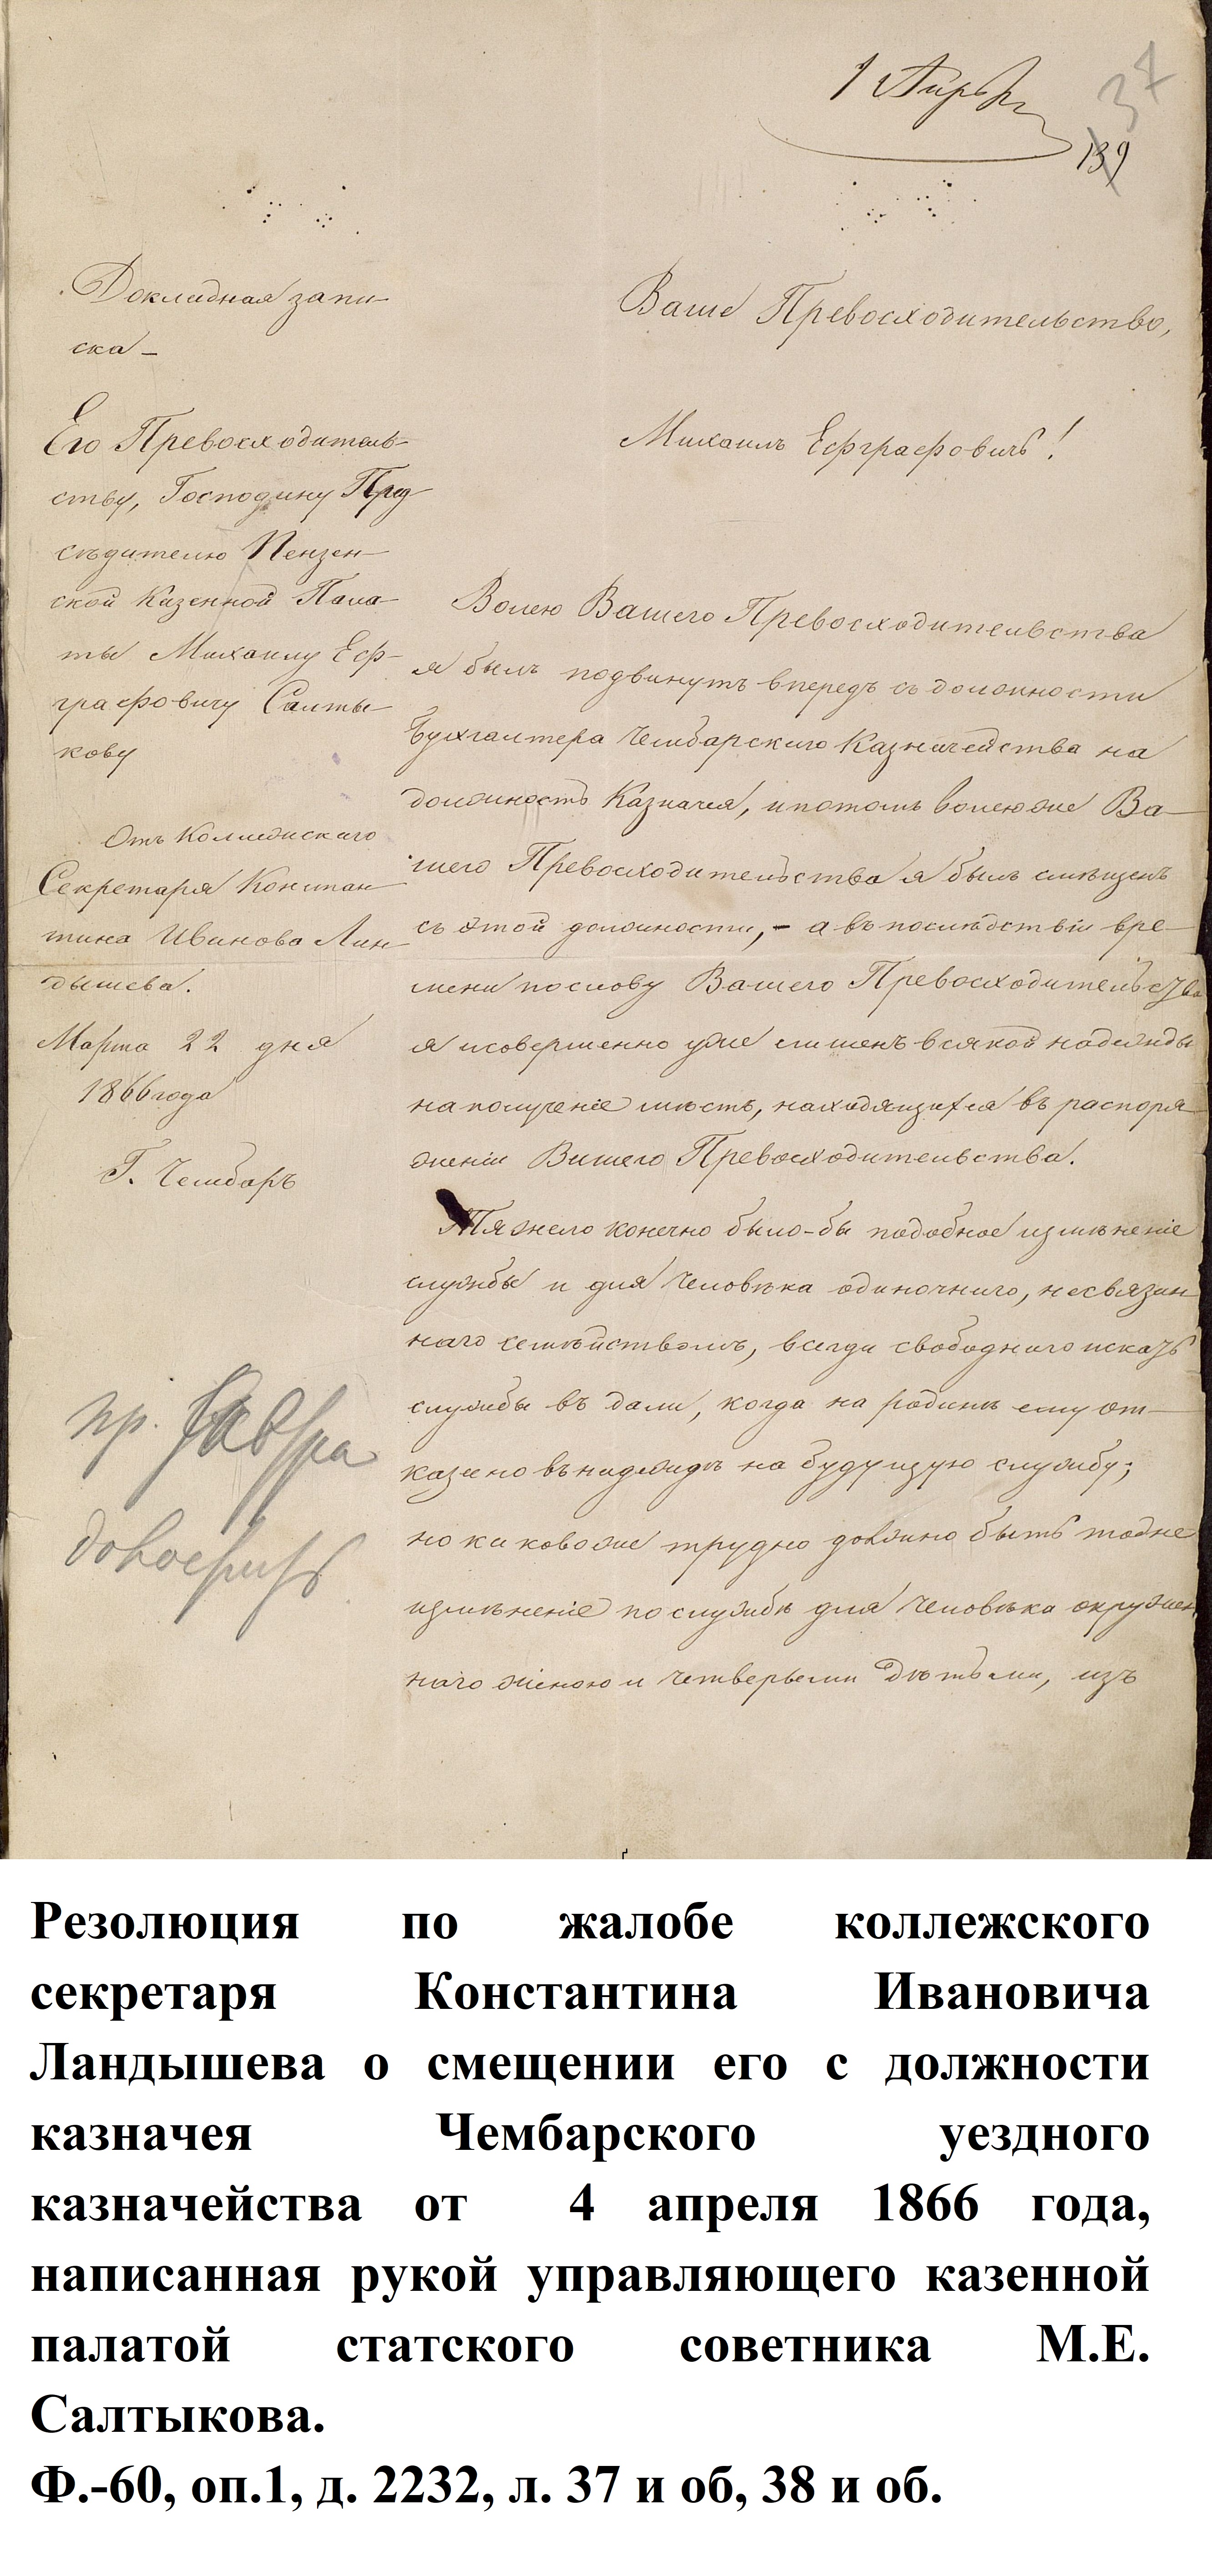 1 Апрѣля
37
139
Докладная запи-
ска -
Его Превосходитель-
ству, Господину Пред-
сѣдателю Пензен-
ской Казенной Пала-
ты Михаилу Евф-
графовичу Салты-
кову
Отъ Коллежскаго
Секретаря Констан-
тина Иванова Лан-
дышева.
Марта 22 дня
1866 года
Г. Чембаръ
пр.
Ваше Превосходительство,
Михаилъ Ефграфовичъ!
Волею Вашего Превосходительства
я былъ подвинутъ впередъ съ должности
Бухгалтера Чембарскаго Казначейства на
должность Казначея, и потомъ волею же Ва-
шего Превосходительства я былъ смѣщенъ
съ этой должности, - а въ послѣдствіи вре-
мени по слову Вашего Превосходительства
я и совершенно уже лишенъ всякой надежды
на полученіе мѣстъ, находящихся въ распоря-
женіи Вашего Превосходительства.
Тяжело конечно было-бы подобное измѣненіе
службы и для человѣка одиночнаго, несвязан-
наго семѣйствомъ, всегда свободнаго искать
службы въ дали, когда на родинѣ ему от-
казано въ надеждѣ на будущую службу;
но каково же трудно должно быть тоже
измѣненіе по службѣ для человѣка окружен-
наго женою и четверыми дѣтьми, изъ
Резолюция по жалобе коллежского
секретаря Константина Ивановича
Ландышева о смещении его с должности
казначея Чембарского уездного
казначейства от 4 апреля 1866 года,
написанная рукой управляющего казенной
палатой статского советника М.Е.
Салтыкова.
Ф.-60, оп.1, д. 2232, л. 37 и об, 38 и об.